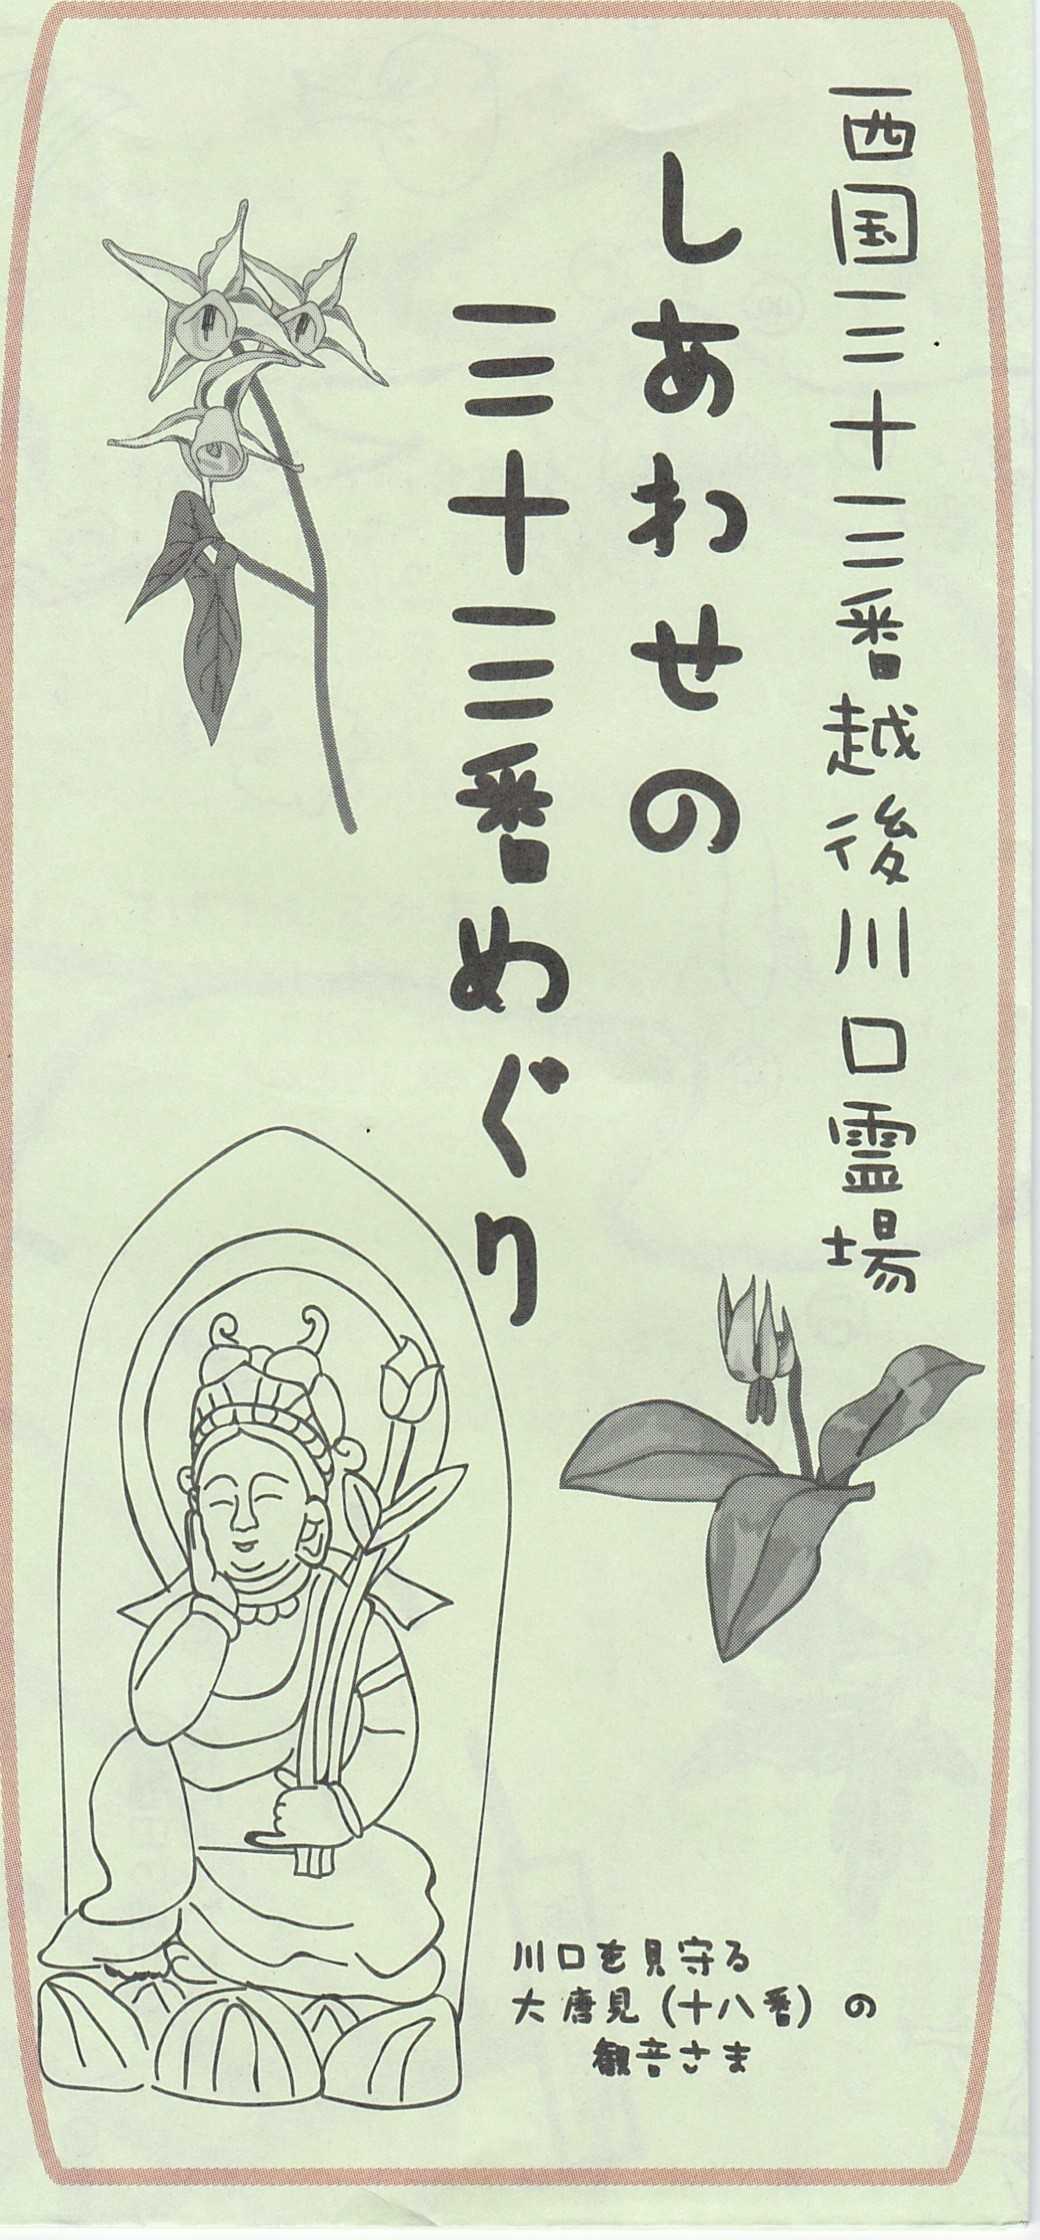 西国三十三番越後川口霊場
しあわせの
三十三番めぐり
川口を見守る
大唐見（十八番）の
観音さま